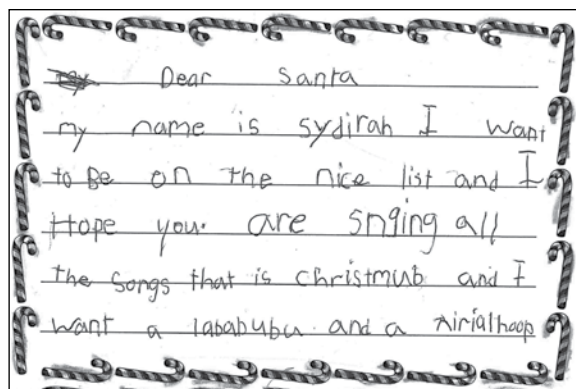 Dear Santa
my name is sydirah I want
to Be on the nice list and I
Hope you. are snging all
the songs that is christmub and I
want a lababubu. and a Airialhoop